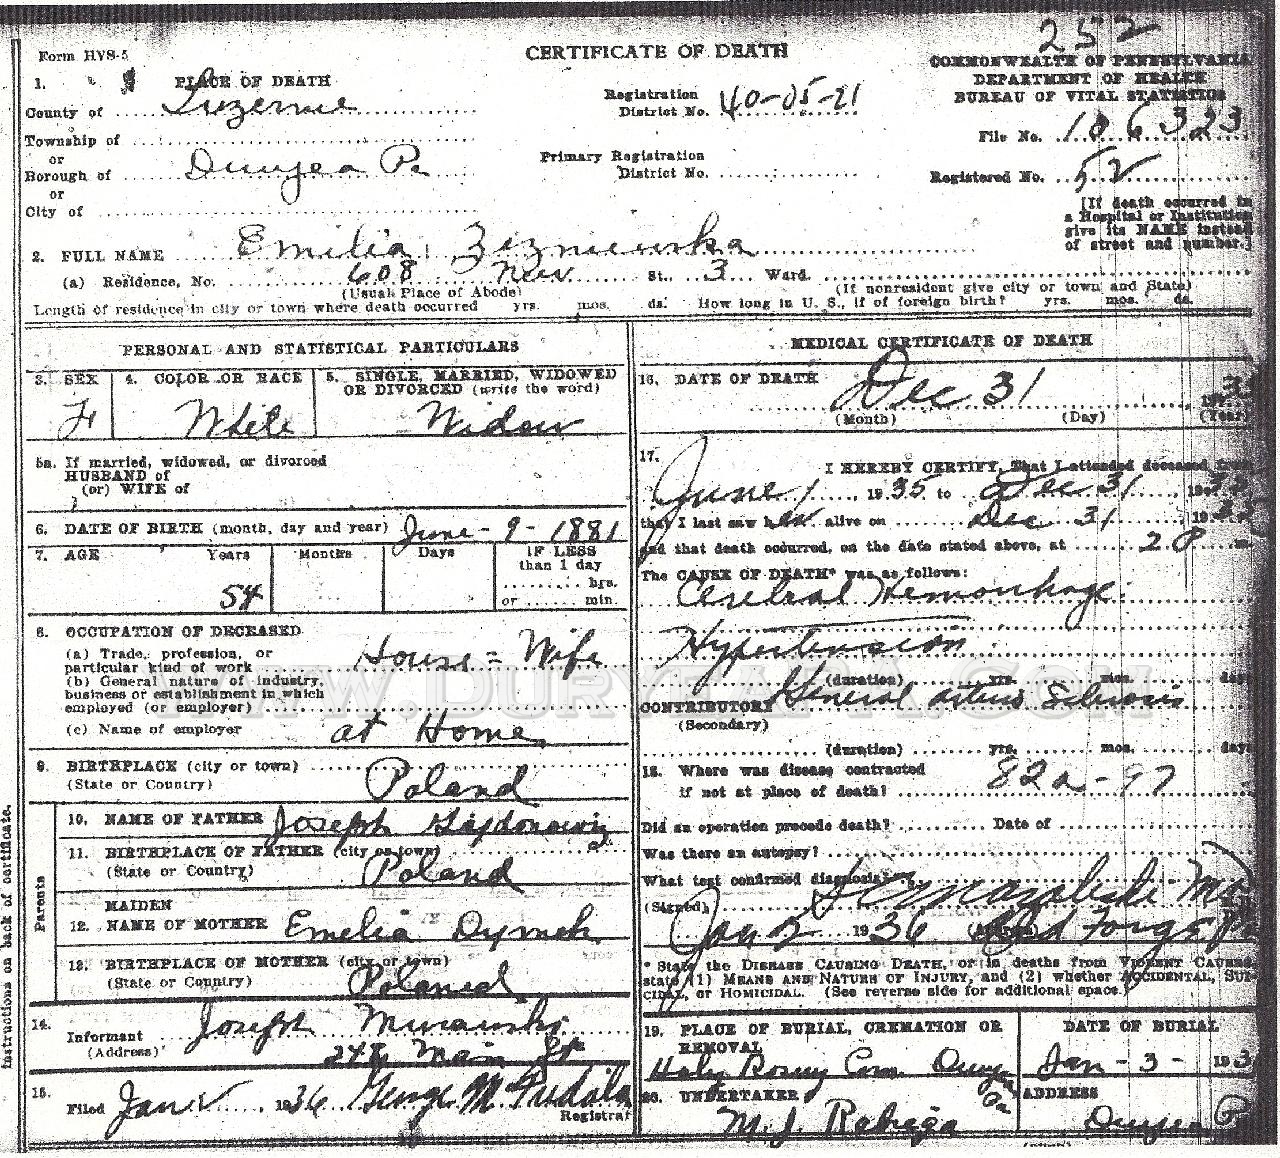 252
Form HVS-5
CERTIFICATE OF DEATH
COMMONWEALTH OF PENNSYLVANIA
DEPARTMENT OF HEALTH
BUREAU OF VITAL STATISTICS
1. PLACE OF DEATH
County of Luzerne
Registration District No. 40-05-21
File No. 106323
Township of
or
Borough of Duryea Pa
Primary Registration District No.
Registered No. 52
or
City of
[If death occurred in a Hospital or Institution give its NAME instead of street and number.]
2. FULL NAME Emilia
(a) Residence, No. 608 New St. 3 Ward.
(Usual Place of Abode)
(If nonresident give city or town and State)
Length of residence in city or town where death occurred yrs. mos. ds. How long in U. S., if of foreign birth? yrs. mos. ds.
PERSONAL AND STATISTICAL PARTICULARS
3. SEX
F
4. COLOR OR RACE
White
5. SINGLE, MARRIED, WIDOWED OR DIVORCED (write the word)
Widow
5a. If married, widowed, or divorced
HUSBAND of
(or) WIFE of
6. DATE OF BIRTH (month, day and year) June-9-1881
7. AGE Years Months Days IF LESS than 1 day
54
hrs.
or min.
8. OCCUPATION OF DECEASED
(a) Trade, profession, or particular kind of work House=Wife
(b) General nature of industry, business or establishment in which employed (or employer)
(c) Name of employer at Home
9. BIRTHPLACE (city or town)
(State or Country) Poland
Parents
10. NAME OF FATHER Joseph
11. BIRTHPLACE OF FATHER (city or town)
(State or Country) Poland
12. MAIDEN NAME OF MOTHER Emelia Dymek
13. BIRTHPLACE OF MOTHER (city or town)
(State or Country) Poland
14.
Informant Joseph Murawski
(Address) Main St
15.
Filed Jan 2 1936 George M.
Registrar
Instructions on back of certificate.
MEDICAL CERTIFICATE OF DEATH
16. DATE OF DEATH Dec 31
(Month) (Day) (Year)
17.
I HEREBY CERTIFY, That I attended deceased from
June 1, 1935 to Dec 31 19
that I last saw her alive on Dec 31 19
and that death occurred, on the date stated above, at 2 P m.
The CAUSE OF DEATH* was as follows:
Cerebral Hemorrhage.
Hypertension
(duration) yrs. mos. days
CONTRIBUTORY General arterio Sclerosis
(Secondary)
(duration) yrs. mos. days
18. Where was disease contracted
if not at place of death? 82a-97
Did an operation precede death? Date of
Was there an autopsy?
What test confirmed diagnosis?
(Signed)
Jan 2 1936 Old Forge Pa
* State the DISEASE CAUSING DEATH, or in deaths from VIOLENT CAUSES, state (1) MEANS AND NATURE OF INJURY, and (2) whether ACCIDENTAL, SUICIDAL, or HOMICIDAL. (See reverse side for additional space.)
19. PLACE OF BURIAL, CREMATION OR REMOVAL
Holy Rosary Cem. Duryea Pa
DATE OF BURIAL
Jan-3- 193
20. UNDERTAKER
M. J.
ADDRESS
Duryea P
WWW.DURYEAPA.COM